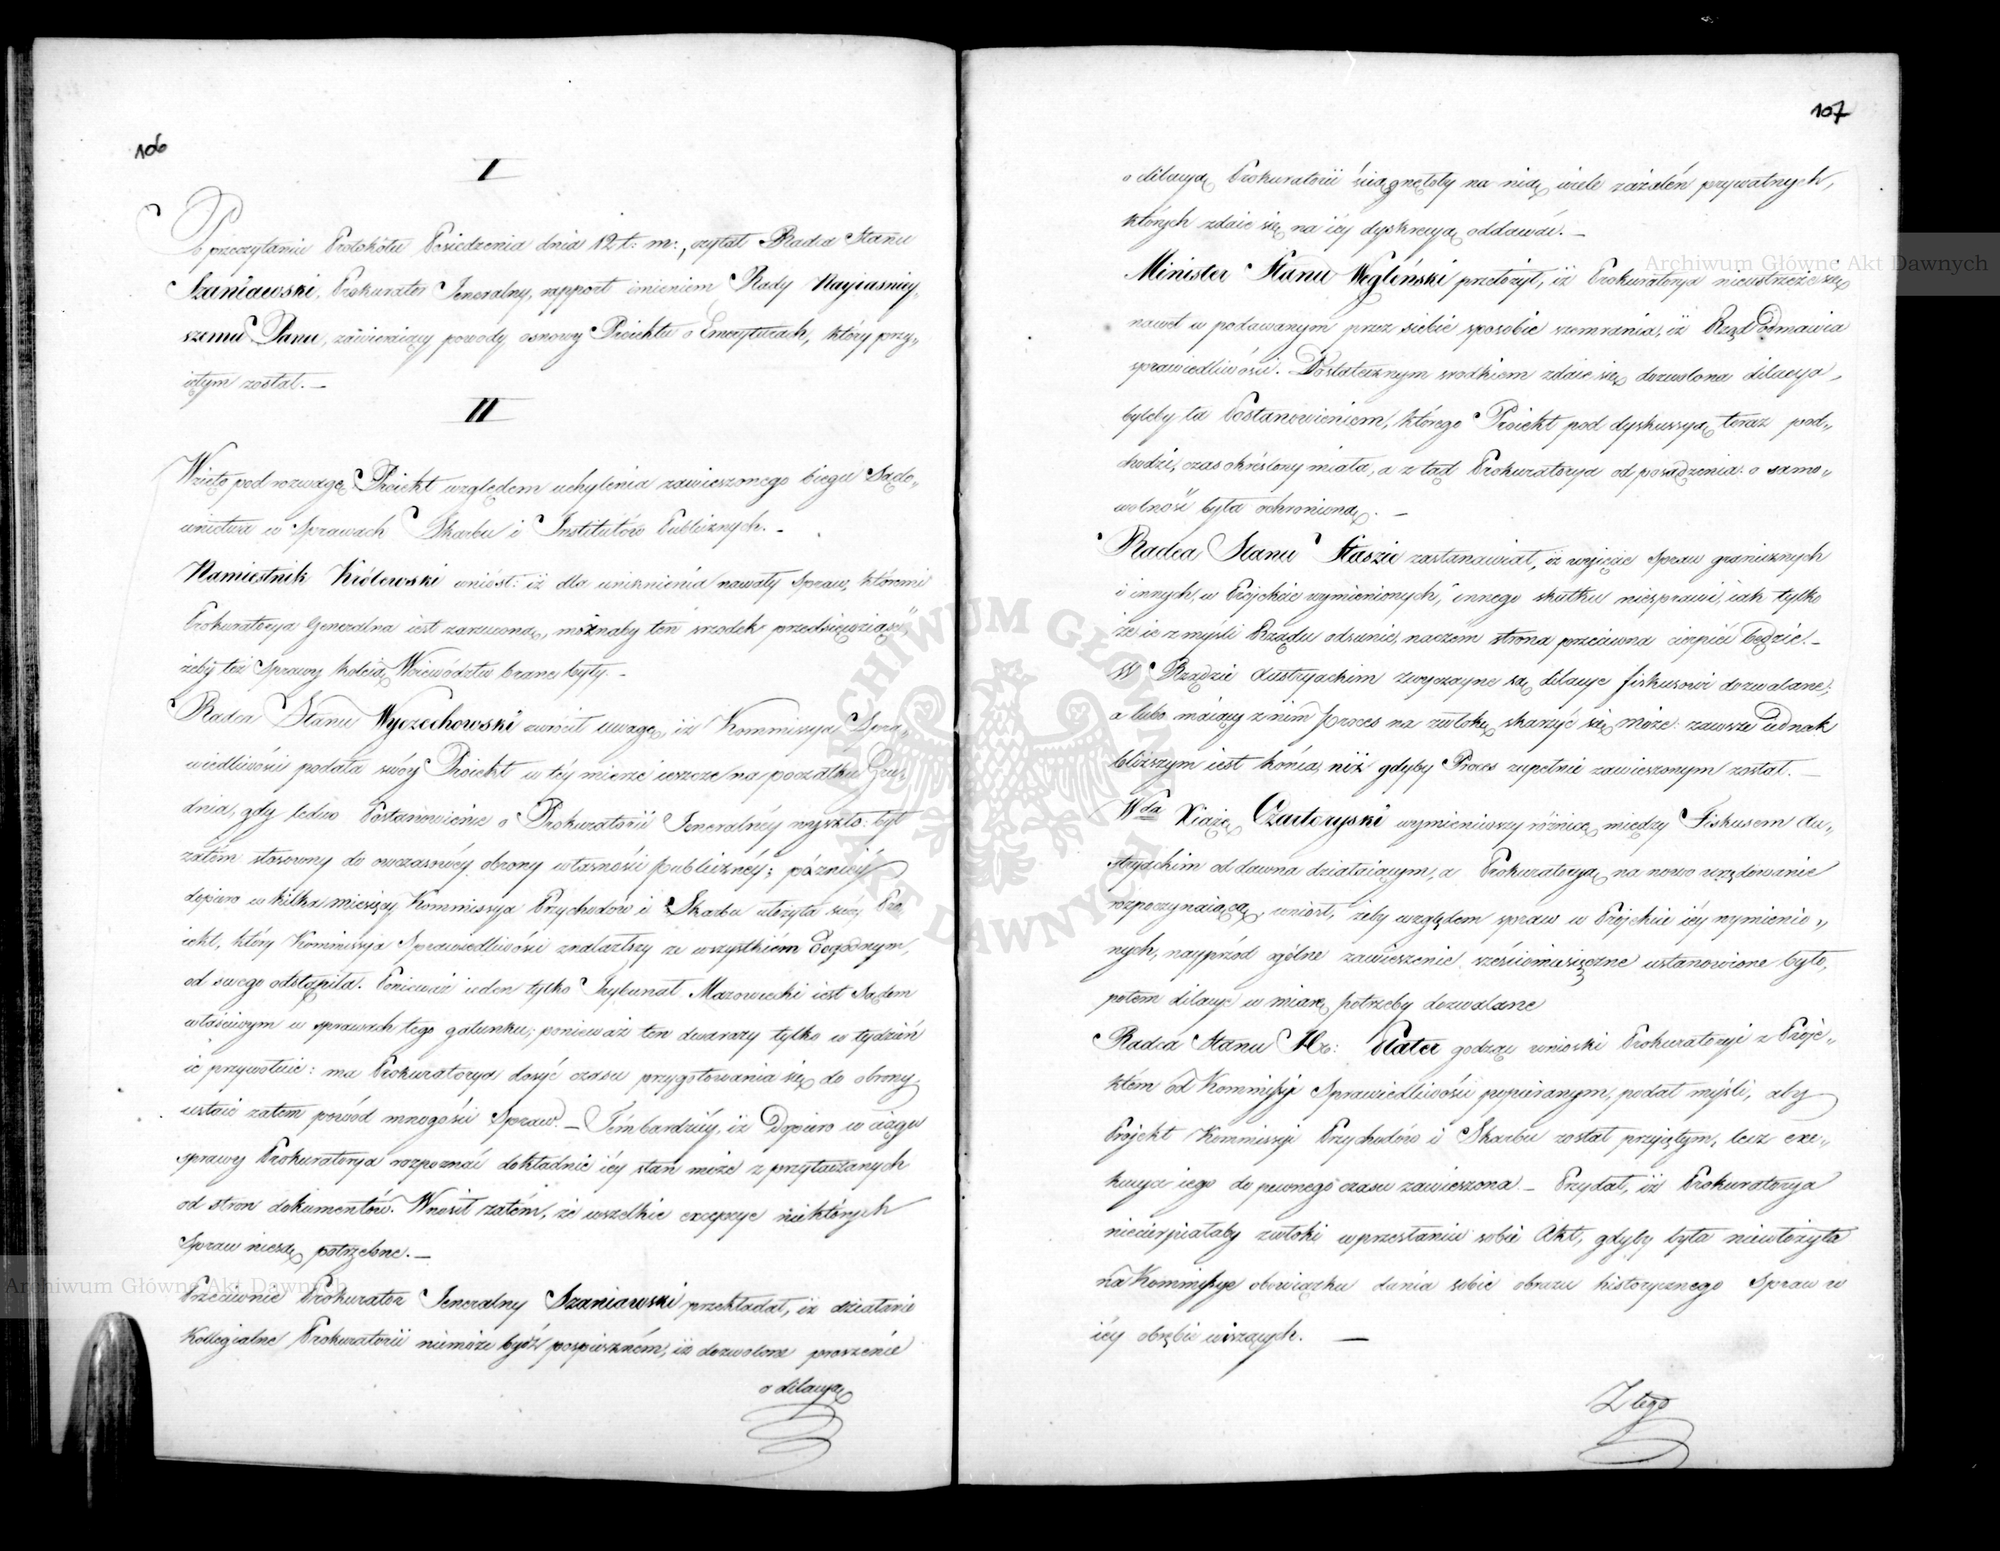 106
I
Po przeczytaniu Protokółu Posiedzenia dnia 12 t: m:, czytał Radca Stanu
Szaniawski, Prokurator Jeneralny, rapport imieniem Rady Nayiaśniey,,
szemu Panu, zawieraiący powody osnowy Proiektu o Emeryturach, który przy,,
iętym został. —
II
Wzięto pod rozwagę Proiekt względem uchylenia zawieszonego biegu Sądo,,
wnictwa w Sprawach Skarbu i Institutów Publicznych. —
Namiestnik Królewski wniósł: iż dla uniknienia nawały Spraw, któremi
Prokuratorya Generalna iest zarzucona, możnaby ten srzodek przedsięwziąść,
żeby też Sprawy koleią Woiewództw brane były. —
Radca Stanu Wyczechowski zwrócił uwagę, iż Kommissya Spra,,
wiedliwości podała swóy Proiekt w téy mierze ieszcze na początku Gru,,
dnia, gdy ledwo Postanowienie o Prokuratorii Jeneralnéy wyszło: był
zatém stosowny do owczasowéy obrony własności publicznéy; późniéy
dopiero w kilka miesięcy Kommissya Przychodów i Skarbu ułożyła swóy Pro,,
iekt, który Kommissya Sprawiedliwości znalazłszy ze wszystkiém dogodnym,
od swego odstąpiła. Ponieważ ieden tylko Trybunał Mazowiecki iest Sądem
właściwym w sprawach tego gatunku; ponieważ ten dwa razy tylko w tydzień
ie przywołuie: ma Prokuratorya dosyć czasu przygotowania się do obrony,
ustaie zatem powód mnogości Spraw. — Témbardziéy, iż dopiero w ciągu
sprawy Prokuratorya rozpoznać dokładnie iéy stan może z przytaczanych
od stron dokumentów. Wnosił zatém, że wszelkie excepcye niektórych
Spraw niesą potrzebne. —
Przeciwnie Prokurator Jeneralny Szaniawski przekładał, iż działanie
Kollegialne Prokuratorii niemoże bydź pospieszném, iż dozwolone proszenie
o dilacyą
107
o dilacyą Prokuratorii ściągnęłoby na nią wiele zażaleń prywatnych,
których zdaie się na iéy dyskrecyą oddawać. —
Minister Stanu Węgleński przełożył, iż Prokuratorya nieustrzeże się
nawet w podawanym przez siebie sposobie szemrania, iż Rząd odmawia
sprawiedliwości. Dostatecznym srodkiem zdaie się dozwolona dilacya,
byleby ta Postanowieniem, którego Proiekt pod dyskussyą teraz pod,,
chodzi, czas określony miała, a z tąd Prokuratorya od posądzenia o samo,,
wolność była ochronioną. —
Radca Stanu Staszic zastanawiał, iż wyięcie Spraw granicznych
i innych, w Projekcie wymienionych, innego skutku niesprawi, iak tylko
że ie z myśli Rządu odsunie, naczém strona przeciwna cierpieć będzie. —
W Rządzie Austryackim zwyczayne są dilacye fiskusowi dozwalane;
a lubo maiący z nim Proces na zwłokę skarżyć się może: zawsze iednak
bliższym iest końca, niż gdyby Proces zupełnie zawieszonym został. —
Wda Xiążę Czartoryski wymieniwszy różnicę między Fiskusem Au,,
stryackim od dawna działaiącym, a Prokuratoryą na nowo urzędowanie
rozpoczynaiącą, wniósł, żeby względem spraw w Projekcie iéy wymienio,,
nych, nayprzód ogólne zawieszenie sześciomiesięczne ustanowione było,
potem dilacye w miarę potrzeby dozwalane
Radca Stanu Hr: Plater godząc wnioski Prokuratoryi z Proje,,
ktem od Kommissyi Sprawiedliwości popieranym, podał myśl, aby
Projekt Kommissyi Przychodów i Skarbu został przyiętym, lecz exe,,
kucya iego do pewnego czasu zawieszona. — Przydał, iż Prokuratorya
niecierpiałaby zwłoki w przesłaniu sobie Akt, gdyby była niewłożyła
na Kommissye obowiązku dania sobie obrazu historycznego Spraw w
iéy obrębie wiszących. —
Z tego
Archiwum Główne Akt Dawnych
Archiwum Główne Akt Dawnych
ARCHIWUM GŁÓWNE AKT DAWNYCH